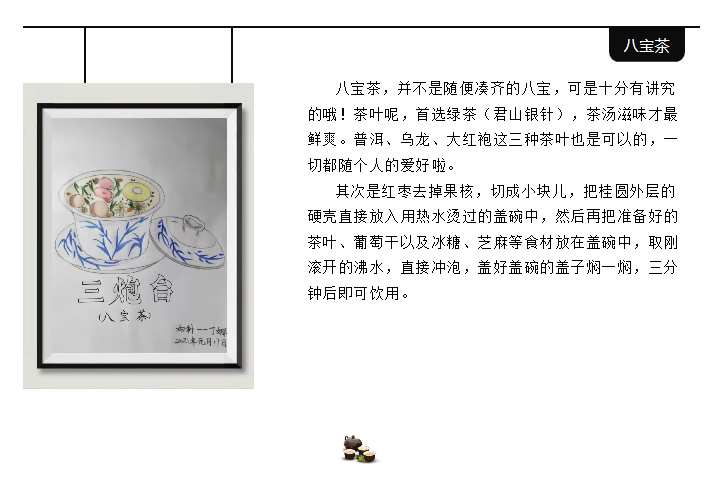 八宝茶
八宝茶，并不是随便凑齐的八宝，可是十分有讲究
的哦！茶叶呢，首选绿茶（君山银针），茶汤滋味才最
鲜爽。普洱、乌龙、大红袍这三种茶叶也是可以的，一
切都随个人的爱好啦。
其次是红枣去掉果核，切成小块儿，把桂圆外层的
硬壳直接放入用热水烫过的盖碗中，然后再把准备好的
茶叶、葡萄干以及冰糖、芝麻等食材放在盖碗中，取刚
滚开的沸水，直接冲泡，盖好盖碗的盖子焖一焖，三分
钟后即可饮用。
三炮台
（八宝茶）
2021年元月17日